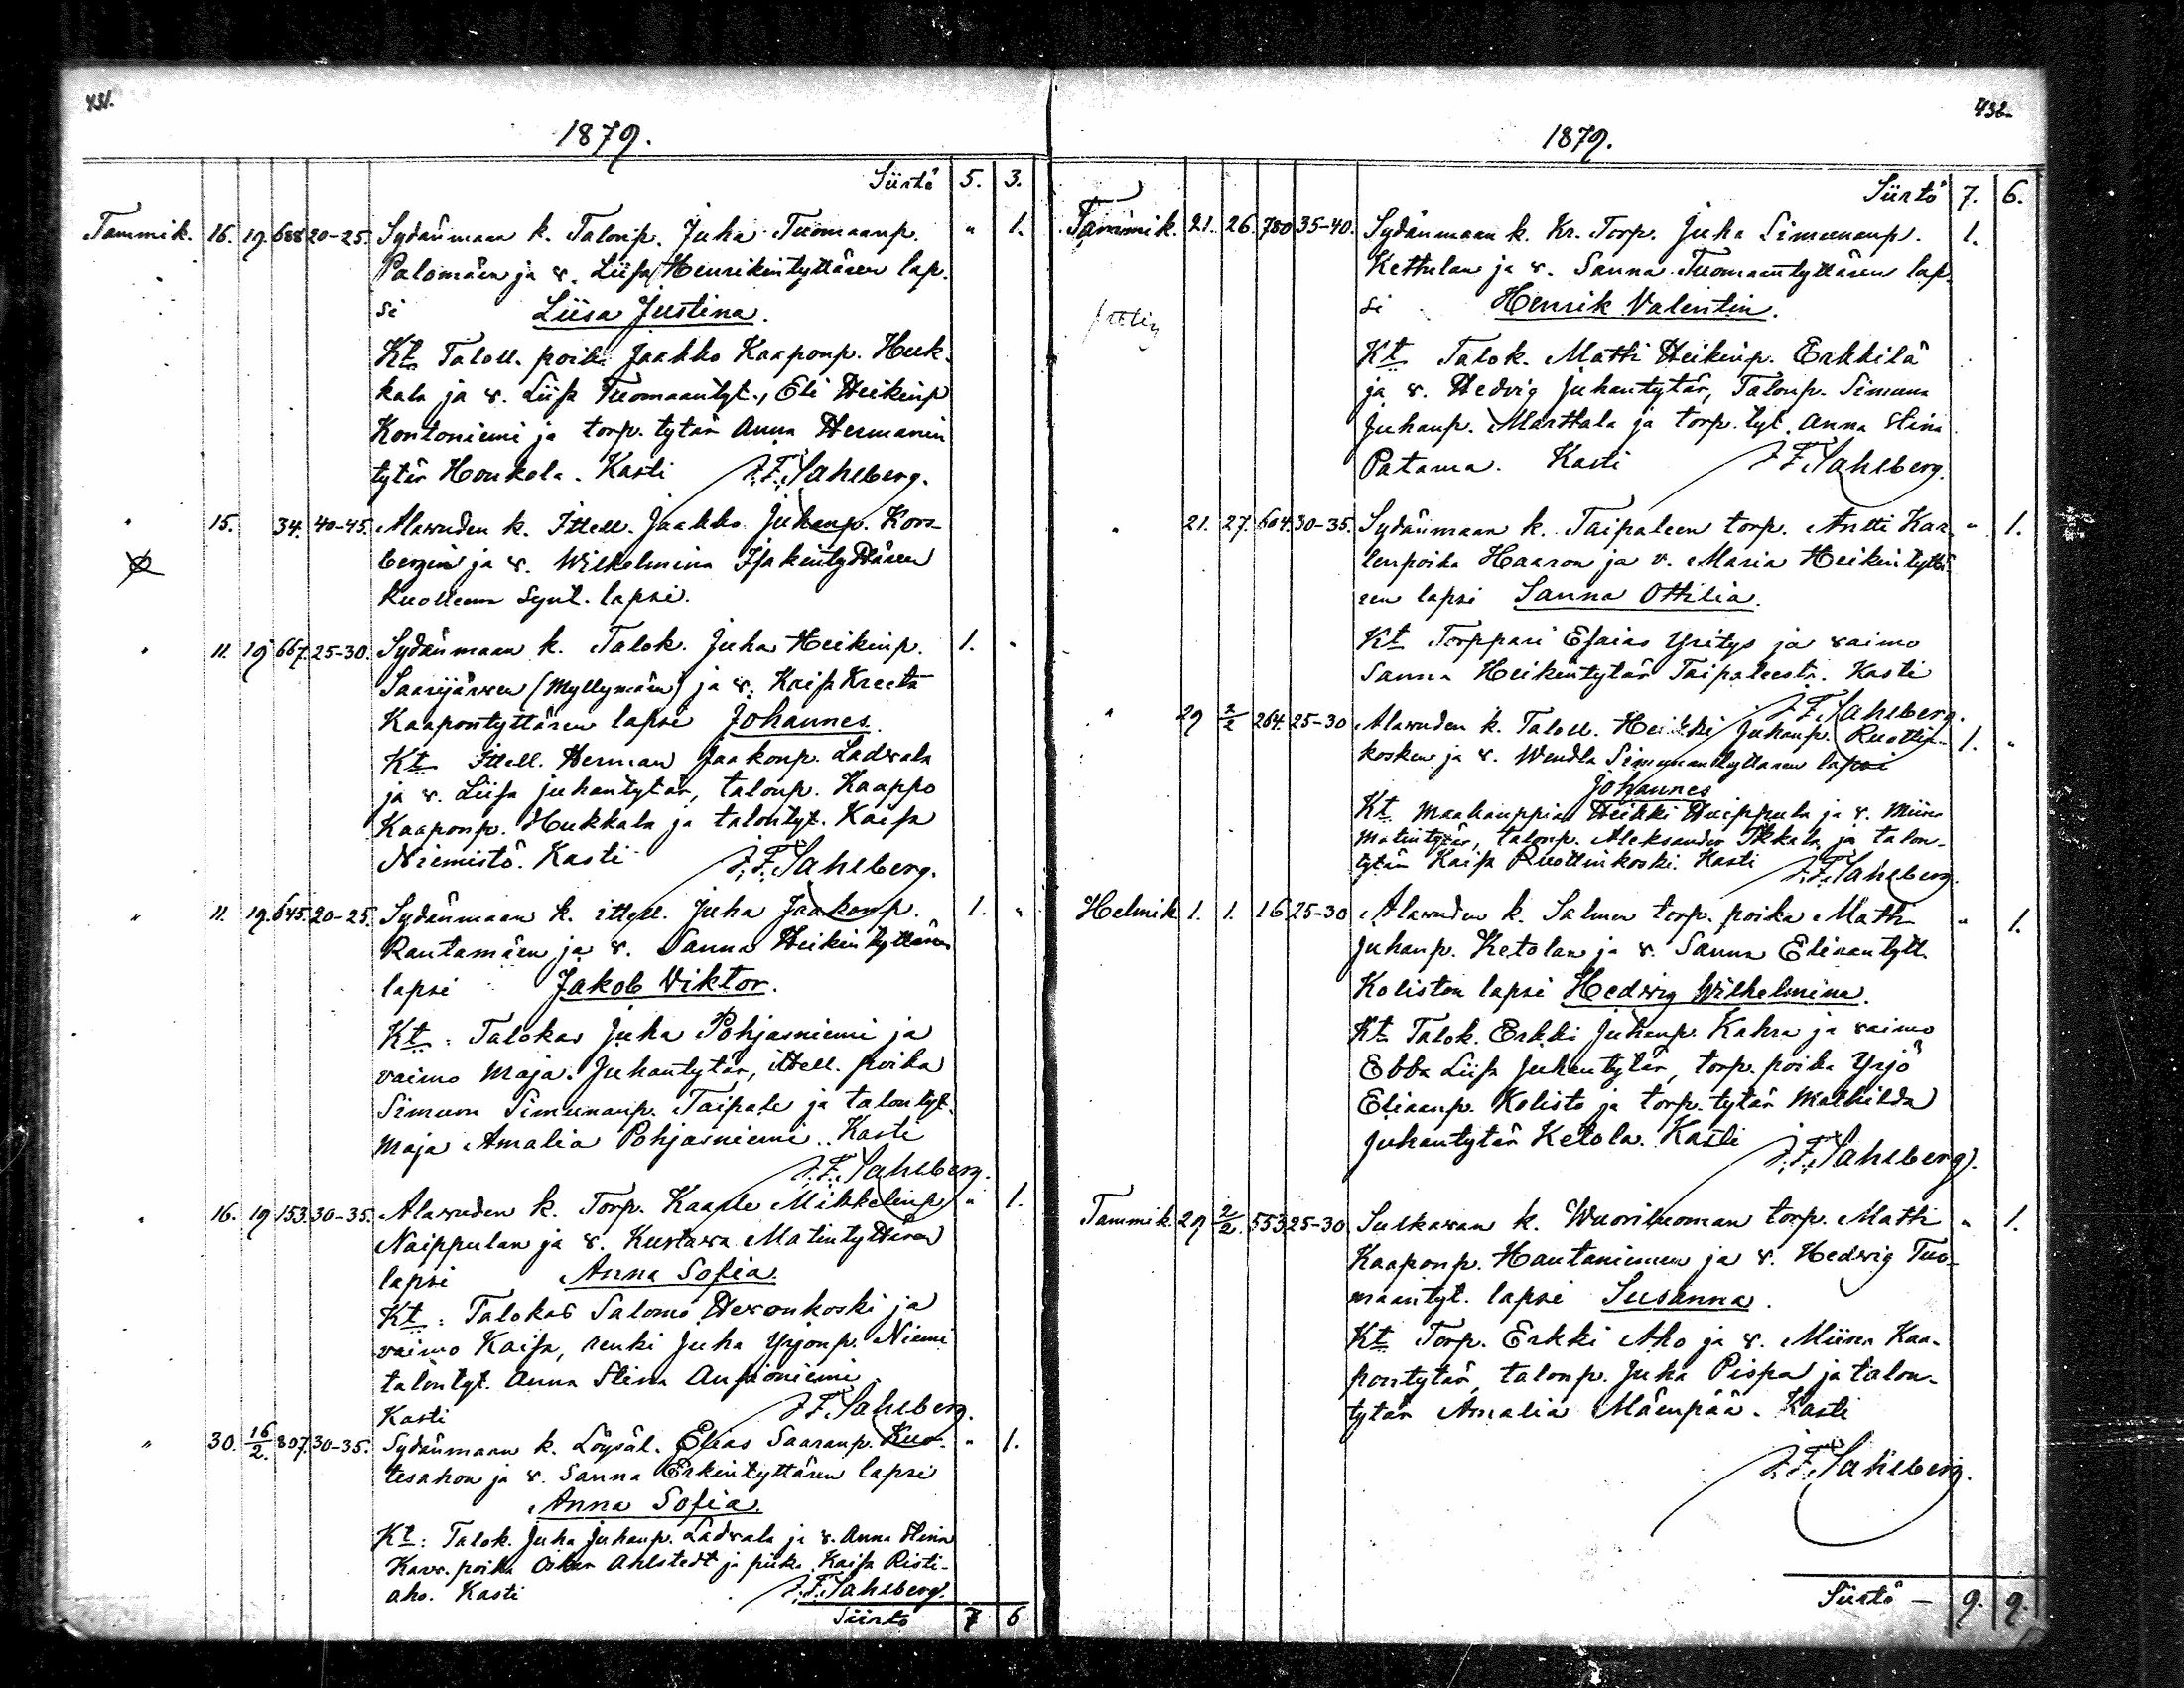 431.
1879.
Siirtö 5. 3.
Tammik. 16. 19. 688 20-25. Sydänmaan k. Talonp. Juha Tuomaanp. " 1.
Palomäen ja v. Liisa Henrikintyttären lap-
si Liisa Justina.
Kt. Taloll. poika Jaakko Kaaponp. Huk-
kala ja v. Liisa Tuomaantyt., Eli Heikinp
Kontoniemi ja torp. tytär Anna Hermanin
tytär Honkola. Kasti J.F. Sahlberg.
" 15. 34. 40-45. Alavuden k. Ittell. Jaakko Juhanp. Kors-
bergin ja v. Wilhelmina Isakintyttären
Kuolleena synt. lapsi.
" 11. 19 667. 25-30. Sydänmaan k. Talok. Juha Heikinp. 1. "
Saarijärven (Myllymäen) ja v. Kaisa Kreeta
Kaapontyttären lapsi Johannes.
Kt. Ittell. Herman Jaakonp. Ladvala
ja v. Liisa Juhantytär, talonp. Kaappo
Kaaponp. Hukkala ja talontyt. Kaisa
Niemistö. Kasti J.F. Sahlberg.
" 11. 19. 645. 20-25. Sydänmaan k. ittell. Juha Jaakonp. 1. "
Rautamäen ja v. Sanna Heikintyttären
lapsi Jakob Viktor.
Kt. : Talokas Juha Pohjasniemi ja
vaimo Maja Juhantytär, ittell. poika
Simuna Simunanp. Taipale ja talontyt.
Maja Amalia Pohjasniemi. Kasti
J.F. Sahlberg.
" 16. 19 153. 30-35. Alavuden k. Torp. Kaaple Mikkelinp. " 1.
Naippulan ja v. Kustava Matintyttären
lapsi Anna Sofia.
Kt. : Talokas Salomo Hevonkoski ja
vaimo Kaisa, renki Juha Yrjönp. Niemi
talontyt. Anna Stina
Kasti J.F. Sahlberg.
" 30. 16/2. 807. 30-35. Sydänmaan k. Löysäl. Elias Saaranp. Kuo- " 1.
tesahon ja v. Sanna Erkintyttären lapsi
Anna Sofia.
Kt. : Talok. Juha Juhanp. Ladvala ja v. Anna Stina
poika Oskar Ahlstedt ja piika Kaisa Risti-
aho. Kasti J.F. Sahlberg.
Siirto 7 6
432.
1879.
Siirtö 7. 6.
Tammik. 21. 26. 780 35-40. Sydänmaan k. Kr. Torp. Juha Simunanp. 1.
Kettulan ja v. Sanna Tuomaantyttären lap-
si Henrik Valentin.
Kt. Talok. Matti Heikinp. Erkkilä
ja v. Hedvig Juhantytär, Talonp. Simuna
Juhanp. Marttala ja torp. tyt. Anna Stina
Patama. Kasti J.F. Sahlberg.
" 21. 27. 604. 30-35. Sydänmaan k. Taipaleen torp. Antti Kaa- " 1.
lenpoika Haaron ja v. Maria Heikintyttä-
ren lapsi Sanna Ottilia.
Kt. Torppari Esaias Yritys ja vaimo
Sanna Heikintytär Taipaleesta. Kasti
J.F. Sahlberg.
" 29 2/2 264. 25-30 Alavuden k. Taloll. Heikki Juhanp. Ruottin- 1. "
kosken ja v. Wendla Simunantyttären lapsi
Johannes
Kt. Maakauppias Heikki Huippula ja v. Miina
Matintytär, talonp. Aleksander Ikkala ja talon-
tytär Kaisa Ruottinkoski. Kasti J.F. Sahlberg.
Helmik 1. 1. 16 25-30 Alavuden k. Salmen torp. poika Matti " 1.
Juhanp. Ketolan ja v. Sanna Eliaantytt.
Koliston lapsi Hedvig Wilhelmina.
Kt. Talok. Erkki Juhanp. Kahra ja vaimo
Ebba Liisa Juhantytär, torp. poika Yrjö
Eliaanp. Kolisto ja torp. tytär Mathilda
Juhantytär Ketola. Kasti
J.F. Sahlberg.
Tammik. 29 2/2. 553 25-30 Sulkavan k. Wuorihuoman torp. Matti " 1.
Kaaponp. Hautaniemen ja v. Hedvig Tuo-
maantyt. lapsi Susanna.
Kt. Torp. Erkki Aho ja v. Miina Kaa-
pontytär, talonp. Juha Pispa ja talon-
tytär Amalia Mäenpää. Kasti
J.F. Sahlberg.
Siirtö — 9. 9.